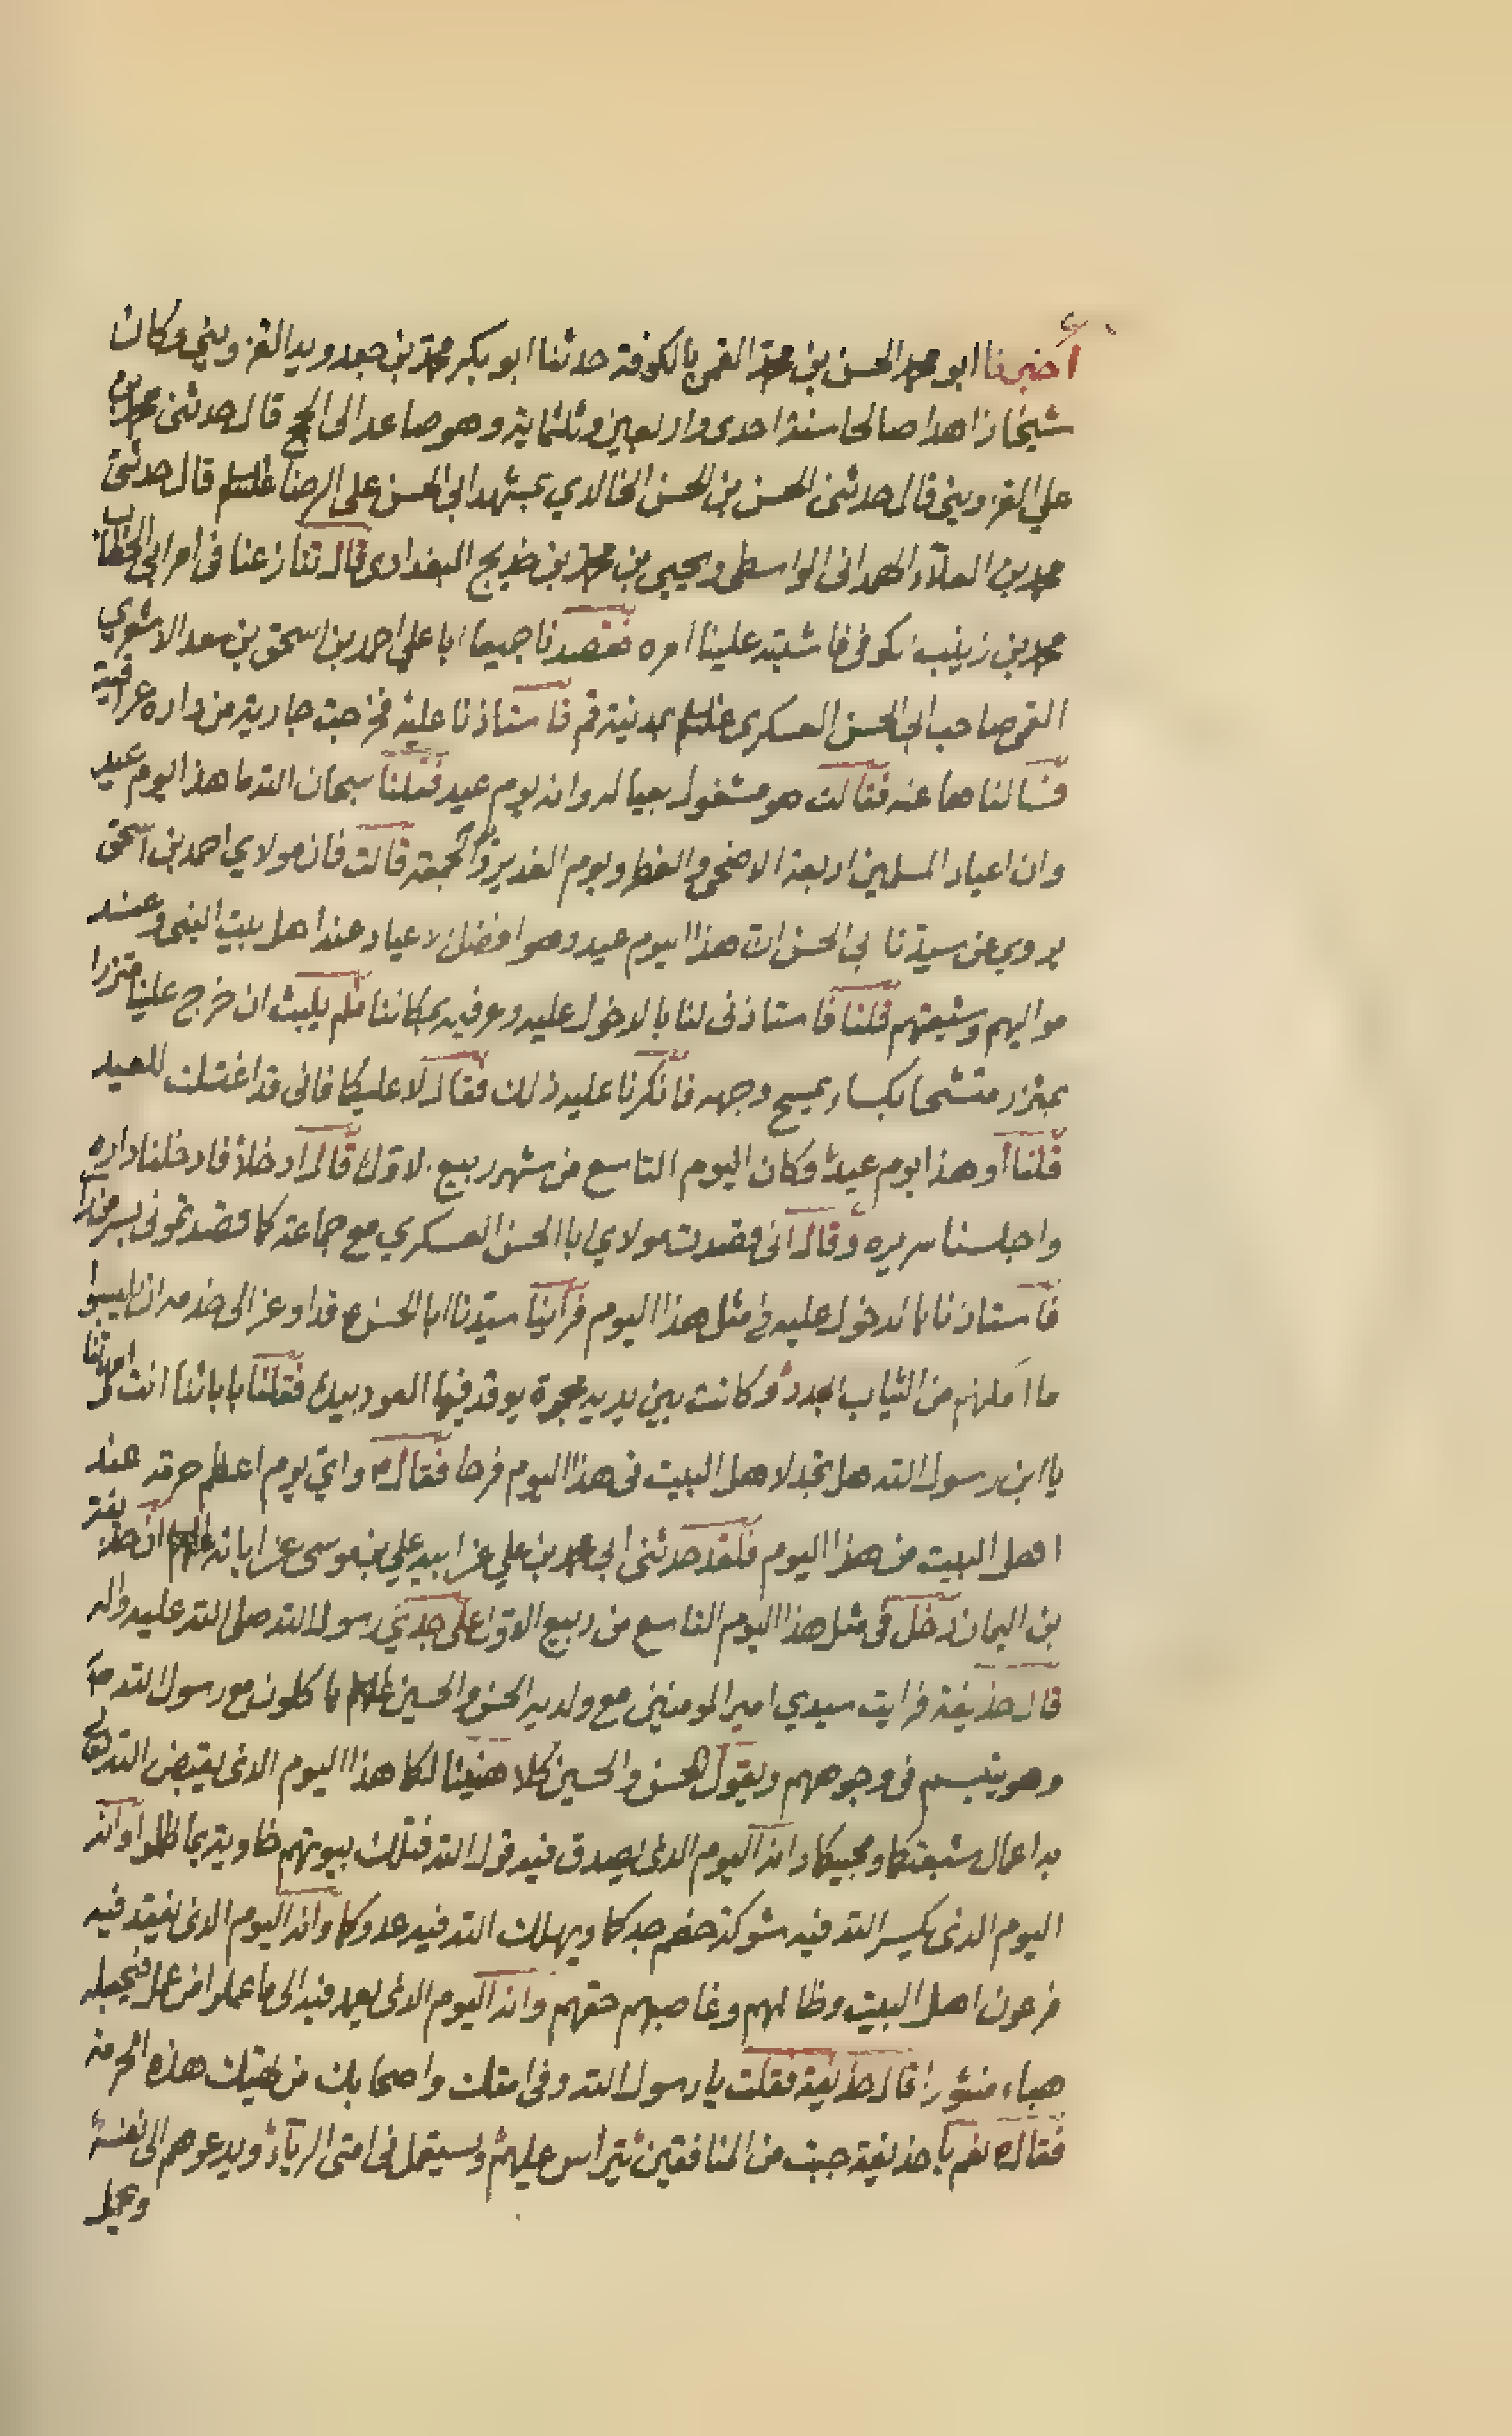 أخبرنا ابو محمد الحسن بن محمد القمي بالكوفة حدثنا ابو بكر محمد بن جعدويه القزويني وكان
شيخا زاهدا صالحا سنة احدى واربعين وثلثماية وهو صاعد الى الحج قال حدثنى محمد بن
علي القزوينى قال حدثنى الحسن بن الحسن الخالدي بمشهد ابى الحسن على الرضا عليه السلام قال حدثنى
محمد بن العلآء الهمدانى الواسطى ويحيى بن محمد بن خريج البغدادى قال تنازعنا فى امر ابى الخطاب
محمد بن زينب كوفى فاشتبه علينا امره فقصدنا جميعا ابا علي احمد بن اسحق بن سعد الاشعري
القمى صاحب ابى الحسن العسكرى عليه السلام بمدينة قم فاستاذنا عليه فخرجت جارية من داره عراقية
فسالناها عنه فقالت هو مشغول بعياله وانه يوم عيد فقلنا سبحان الله ما هذا يوم عيد
وان اعياد المسلمين اربعة الاضحى والفطر ويوم الغدير والجمعة قالت فان مولاي احمد بن اسحق
يروي عن سيدنا ابى الحسن ان هذا اليوم عيد وهو افضل الاعياد عند اهل بيت النبى وعند
مواليهم وشيعتهم قلنا فاستاذنى لنا بالدخول عليه وعرفيه بمكاننا فلم يلبث ان خرج علينا متزرا
بمئزر متشحا بكساء يمسح وجهه فانكرنا عليه ذلك فقال لا عليكما فانى قد اغتسلت للعيد
قلنا أو هذا يوم عيد وكان اليوم التاسع من شهر ربيع الاول قال ادخلا فادخلنا داره
واجلسنا سريره وقال انى قصدت مولاي ابا الحسن العسكري مع جماعة كما قصدتمونى بسر من راى
فاستاذنا بالدخول عليه فى مثل هذا اليوم فراينا سيدنا ابا الحسن ع قد اوعز الى خدمه ان يلبسوا
ما امكنهم من الثياب الجدد وكانت بين يديه مجمرة يوقد فيها العود بيده فقلنا بابائنا انت وامهاتنا
يا ابن رسول الله هل تجد لاهل البيت فى هذا اليوم فرحا فقال واي يوم اعظم حرمة عند
اهل البيت من هذا اليوم فلقد حدثنى ابى محمد بن علي عن ابيه علي بن موسى عن ابائه عليهم السلام ان حذيفة
بن اليمان دخل فى مثل هذا اليوم التاسع من ربيع الاول على جدي رسول الله صلى الله عليه واله
قال حذيفة فرايت سيدي امير المومنين مع ولديه الحسن والحسين عليهم السلام ياكلون مع رسول الله ص
وهو يتبسم فى وجوههم ويقول للحسن والحسين كلا هنيئا لكما هذا اليوم الذى يقبض الله تعالى
به اعمال شيعتكما ومحبيكما وانه اليوم الذى يصدق فيه قول الله فتلك بيوتهم خاوية بما ظلموا وانه
اليوم الذى يكسر الله فيه شوكة خصم جدكما ويهلك الله فيه عدوكما وانه اليوم الذى يفقد فيه
فرعون اهل البيت وظالمهم وغاصبهم حقهم وانه اليوم الذى يعمد فيه الى ما عملوا من عمل فيجعله
هباء منثورا قال حذيفة فقلت يا رسول الله وفى امتك واصحابك من يهتك هذه الحرمة
فقال نعم يا حذيفة جبت من المنافقين يتراس عليهم ويستعمل فى امتى الرياء ويدعوهم الى نفسه
ويحمل